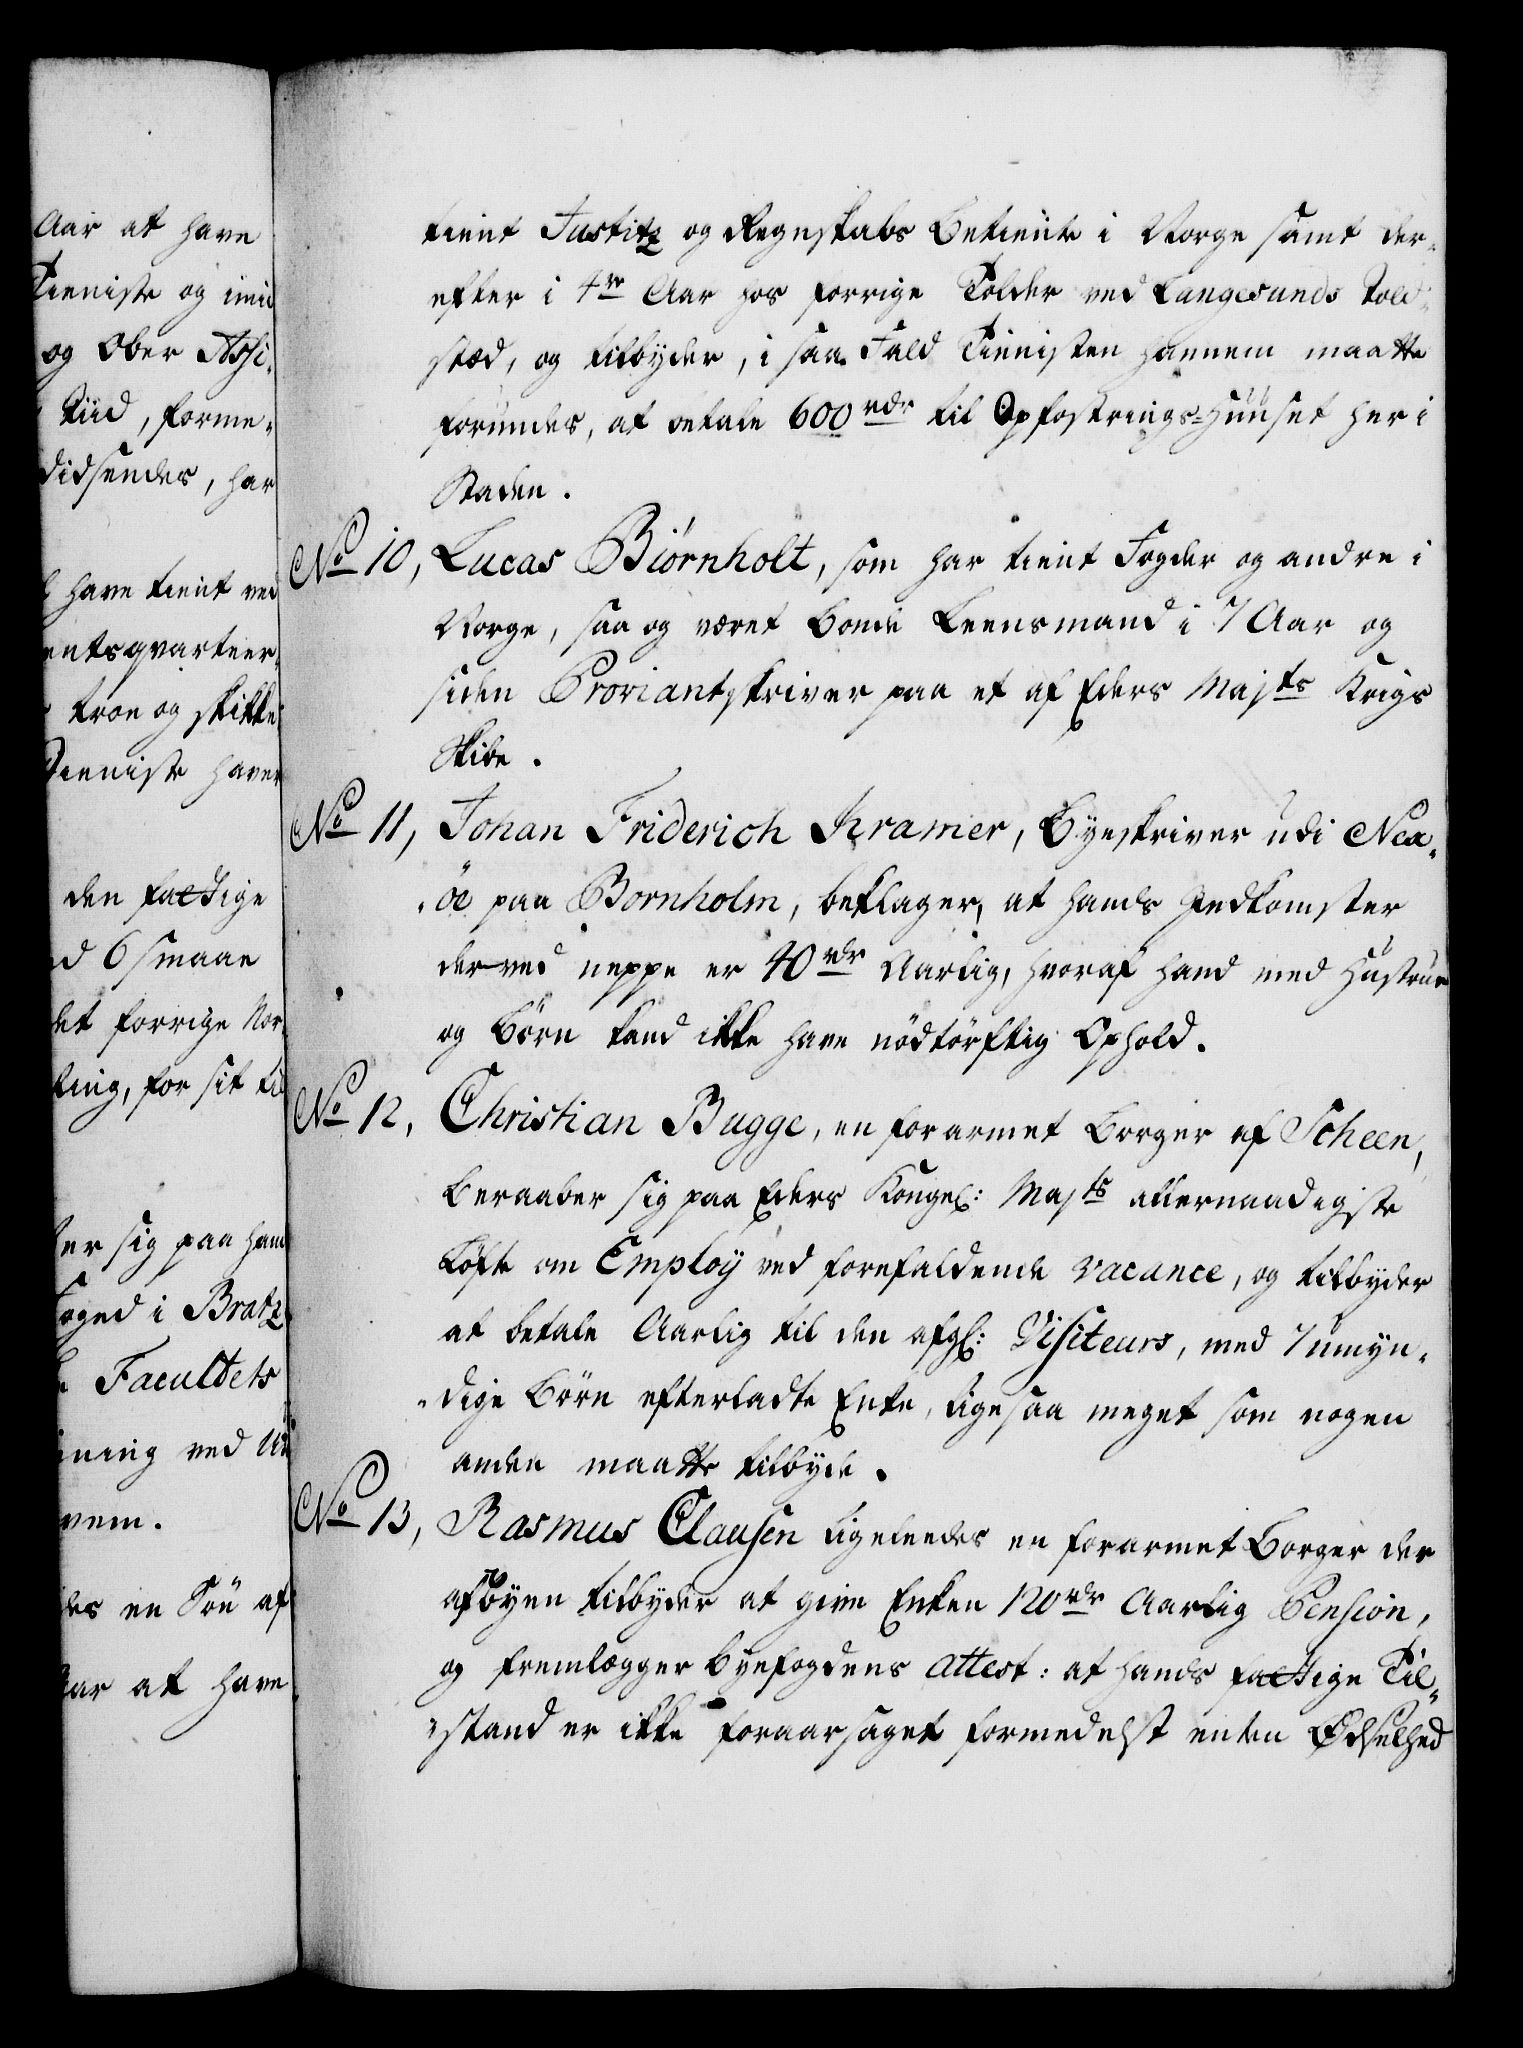 Aar at have
Tieniste og imid
og Ober Assi-
Tiid, forme-
didsendes, har
have tient ved
entsqvarteer-
troe og skikke
Tieniste haver
den fattige
6 smaae
det forrige Nor-
ting, for sit til
ter sig paa ham
foged i Bratz
Facultets
ning ved Un
vem.
des en Søn af
Aar at have
tient Justitz og Regnskabs Betiente i Norge samt der-
efter i 4re Aar hos forrige Tolder ved Langesunds Told-
stæd, og tilbyder, i saa Fald Tienisten hannem maatte
forundes, at betale 600 rdr til Opfostrings-Huuset her i
Staden.
No 10, Lucas Biørnholt, som har tient Fogder og andre i
Norge, saa og været Bonde Leensmand i 7 Aar og
siden Proviantskriver paa et af Eders Majts Krigs
Skibe.
No 11, Johan Friderich Kramer, Byeskriver udi Nex-
-öe paa Bornholm, beklager, at hands Indkomster
derved neppe er 40 rdr Aarlig, hvoraf hand med Hustrue
og Börn kand ikke have nödtörftig Ophold.
No 12, Christian Bugge, en forarmet Borger af Scheen,
beraaber sig paa Eders Kongel: Majts allernaadigste
Løfte om Employ ved forefaldende vacance, og tilbyder
at betale Aarlig til den afgl: Visiteurs, med 7 umyn-
-dige Börn efterladte Enke, ligesaa meget som nogen
anden maatte tilbyde.
No 13, Rasmus Clausen ligeledes en forarmet Borger der
af Byen tilbyder at give Enken 120 rdr Aarlig Pension,
og fremlægger Byefogdens attest: at hands fattige Til-
-stand er ikke foraarsaget formedelst enten Ødselhed